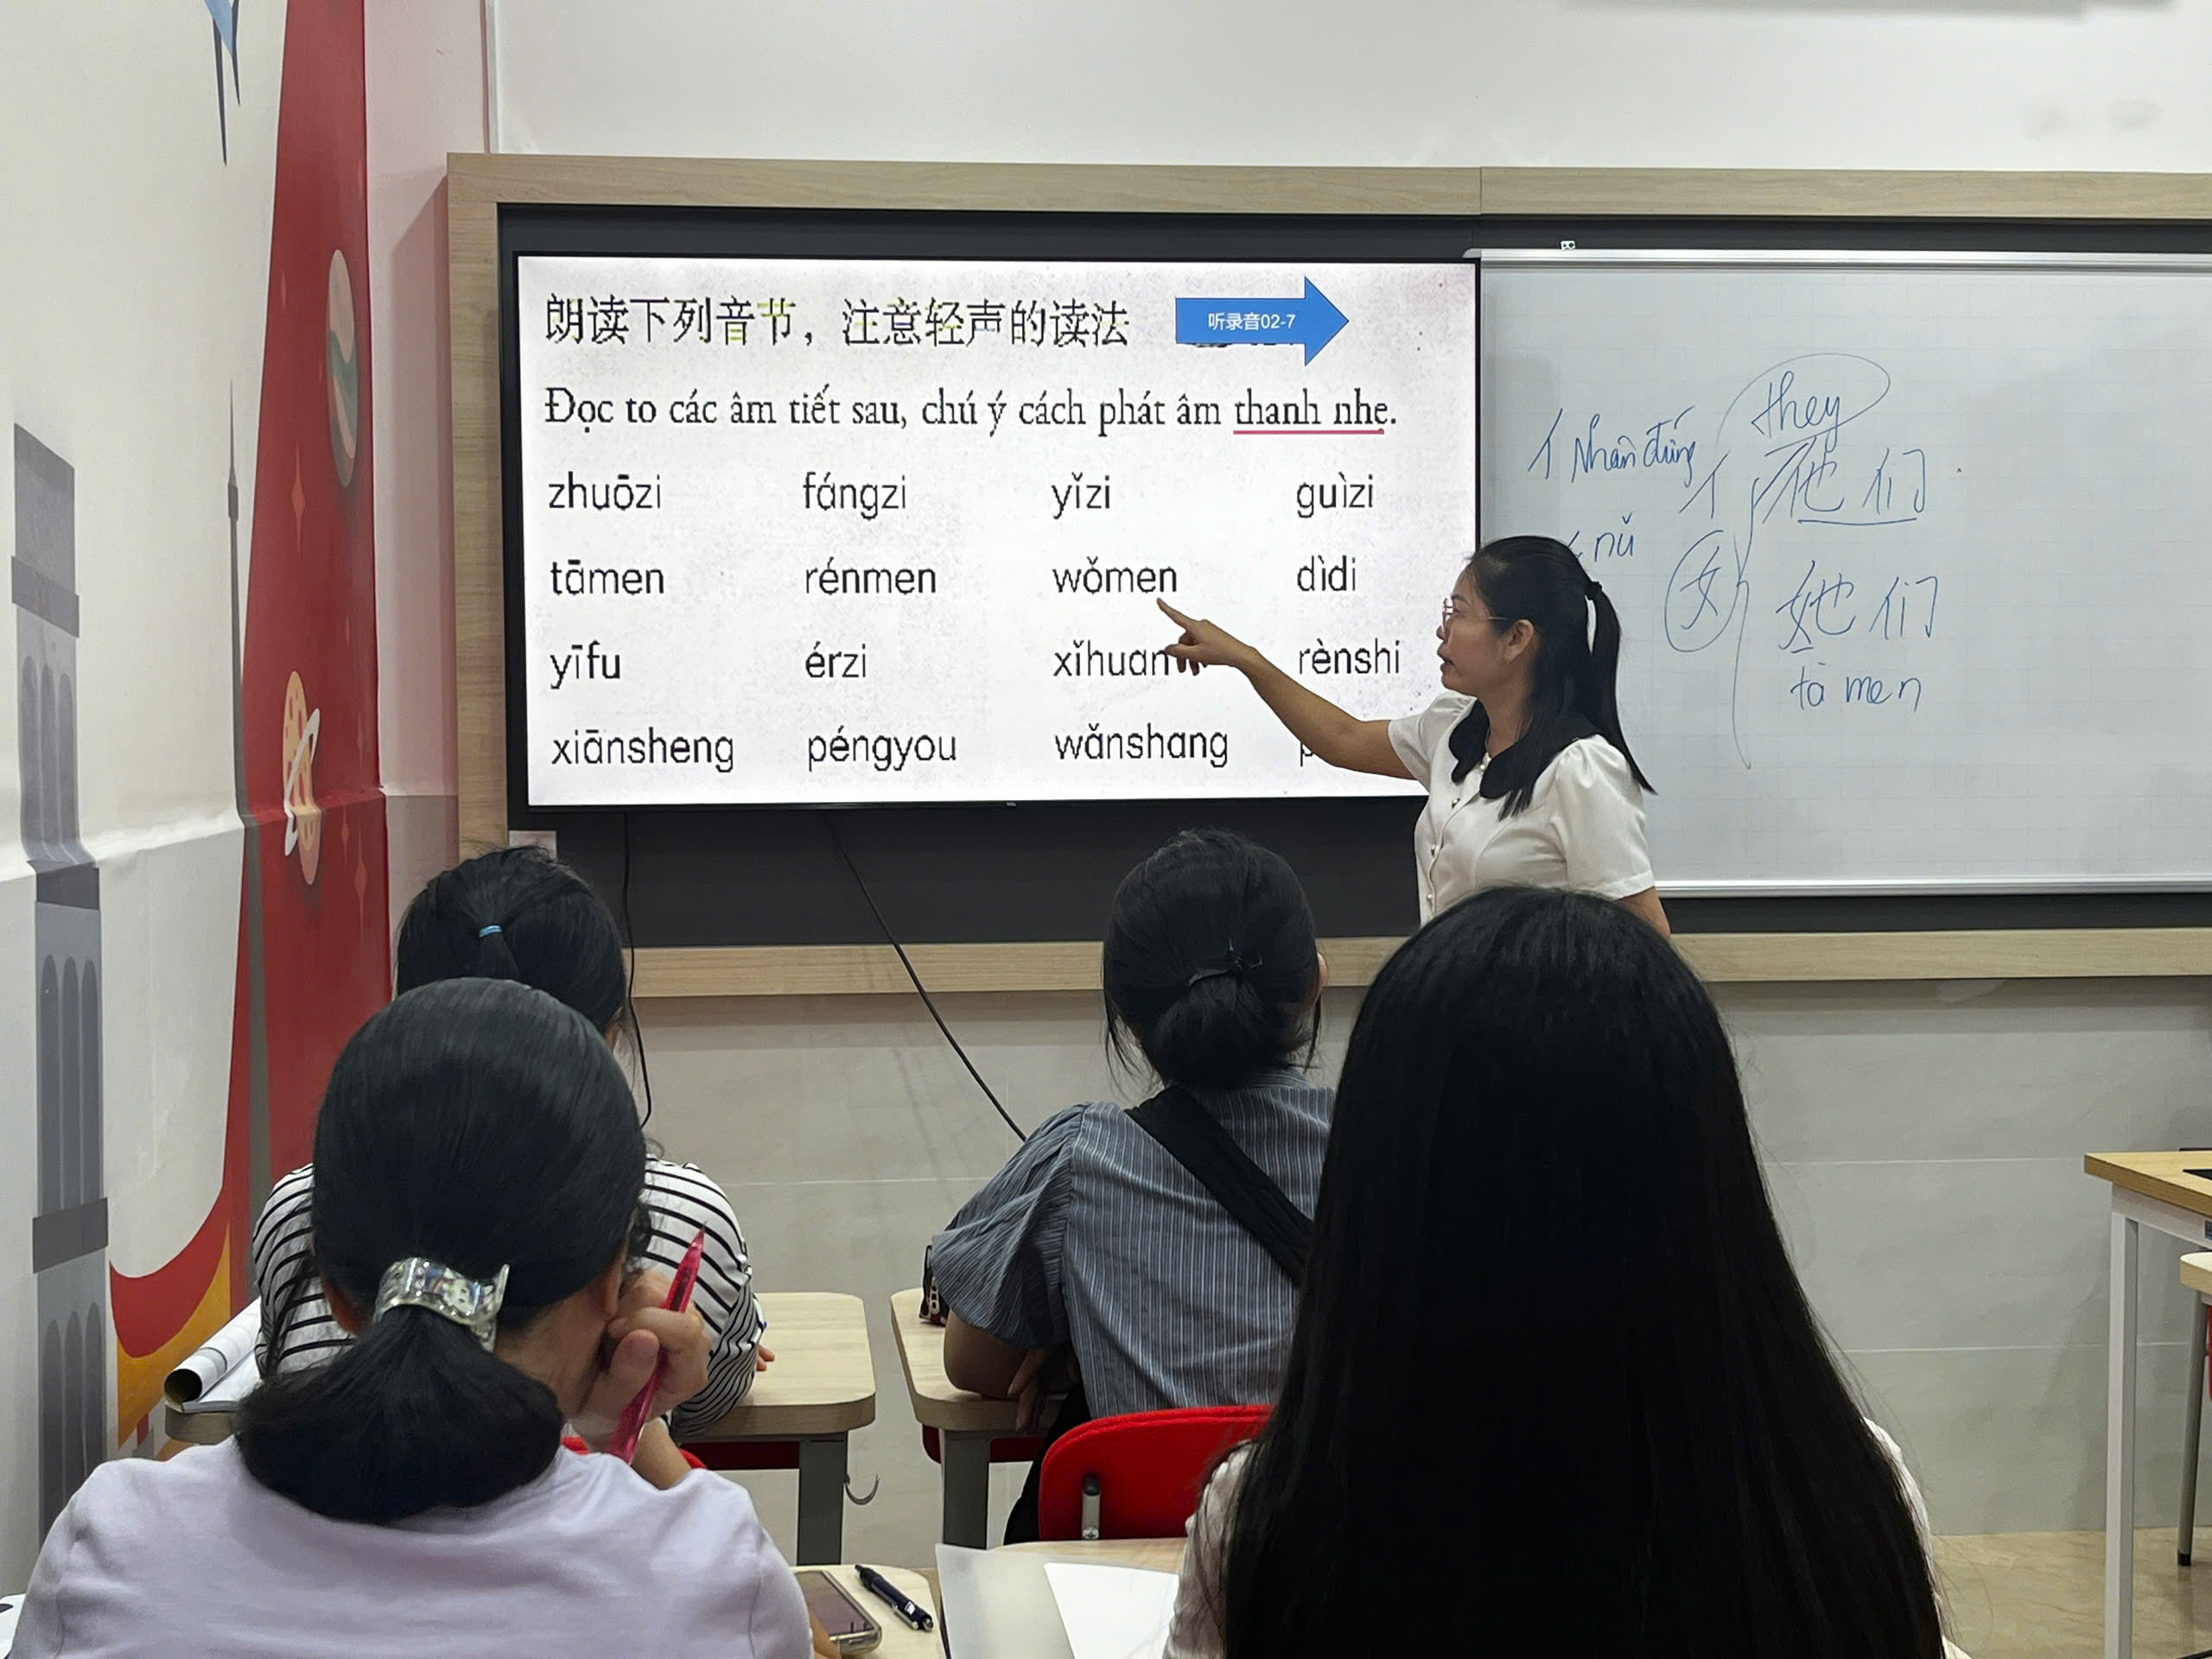 朗读下列音节，注意轻声的读法
听录音02-7
Đọc to các âm tiết sau, chú ý cách phát âm thanh nhẹ.
zhuōzi fángzi yǐzi guìzi
tāmen rénmen wǒmen dìdi
yīfu érzi xǐhuan rènshi
xiānsheng péngyou wǎnshang
they
亻 Nhân đứng 亻 他们
nǚ 女 她们
tā men